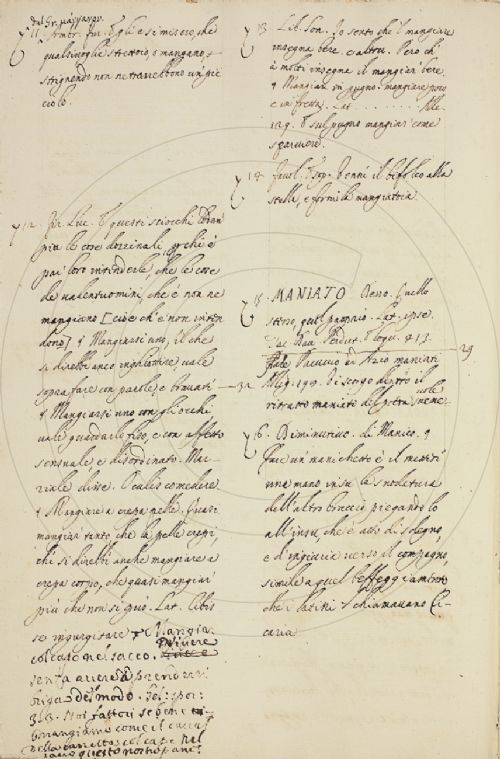 11. Ambr. fur. Egli è sì misero, che
qualsivoglia strettoio, o mangano
strignendo non ne trarrebbono un gic
ciolo.
12. fir. Luc. E questi sciocchi
più le cose dozzinali,
par loro intenderle, che le cose
de valentuomini, che e' non ne
mangiano [cioè ch'e' non inten
dono] § Mangiarsi uno, il che
si direbbe anco inghiottire vale
sopraffare con parole, e bravate
§ Mangiarsi uno con gli occhi,
vale guardarlo fiso, e con affetto
sensuale, e disordinato. Mar-
ziale disse. Oculis comedere
§ Mangiare a crepa pelle. Quasi
mangiar tanto che la pelle crepi,
che si direbbe anche mangiare a
crepa corpo, che quasi mangiar
più che non si può. Lat. Cibis
se ingurgitare § Mangiar
col capo nel sacco. Vivere
senza avere a prendersi
briga del modo.
313. Noi fattori se bene
mangiamo come il cavallo
della carretta col capo nel
questo nostro pane
13. Lib. Son. Io sento che 'l mangiare
insegna bere, e altru. Però ch'
a molti insegna il mangiar bere.
§ Mangiar in pugno. mangiare poco
e in fretta. Lat. . . . . . . Alle.
129. E sul pugno mangiar come
sparviere.
14. favol. Esop. Venni il bifolco alla
stalla, e fornì la mangiatoia.
15. MANIATO. Desso. Quello
stesso, quel proprio. Lat. ipse.
413.
Pacuvio ed Azio maniati 29
32 All. 199. Di scrigo
ritratto maniato del
16. Diminutivo. di Manico. §
fare un manichetto è il mettere
una mano in su la snodatura
dell'altro braccio piegandolo
all'insù, che è atto di sdegno,
e d'ingiuria verso il compagno,
simile a quel beffeggiamento
che i latini chiamavano Ci-
conia